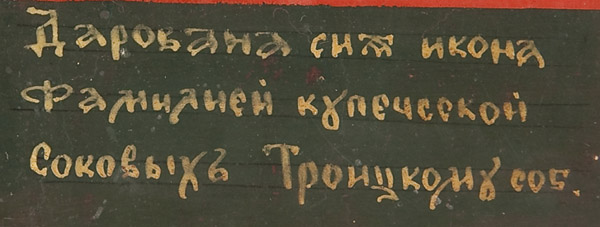 Дарована сиѧ икона
Фамилией купечсекой
Соковыхъ Троицкому соб.